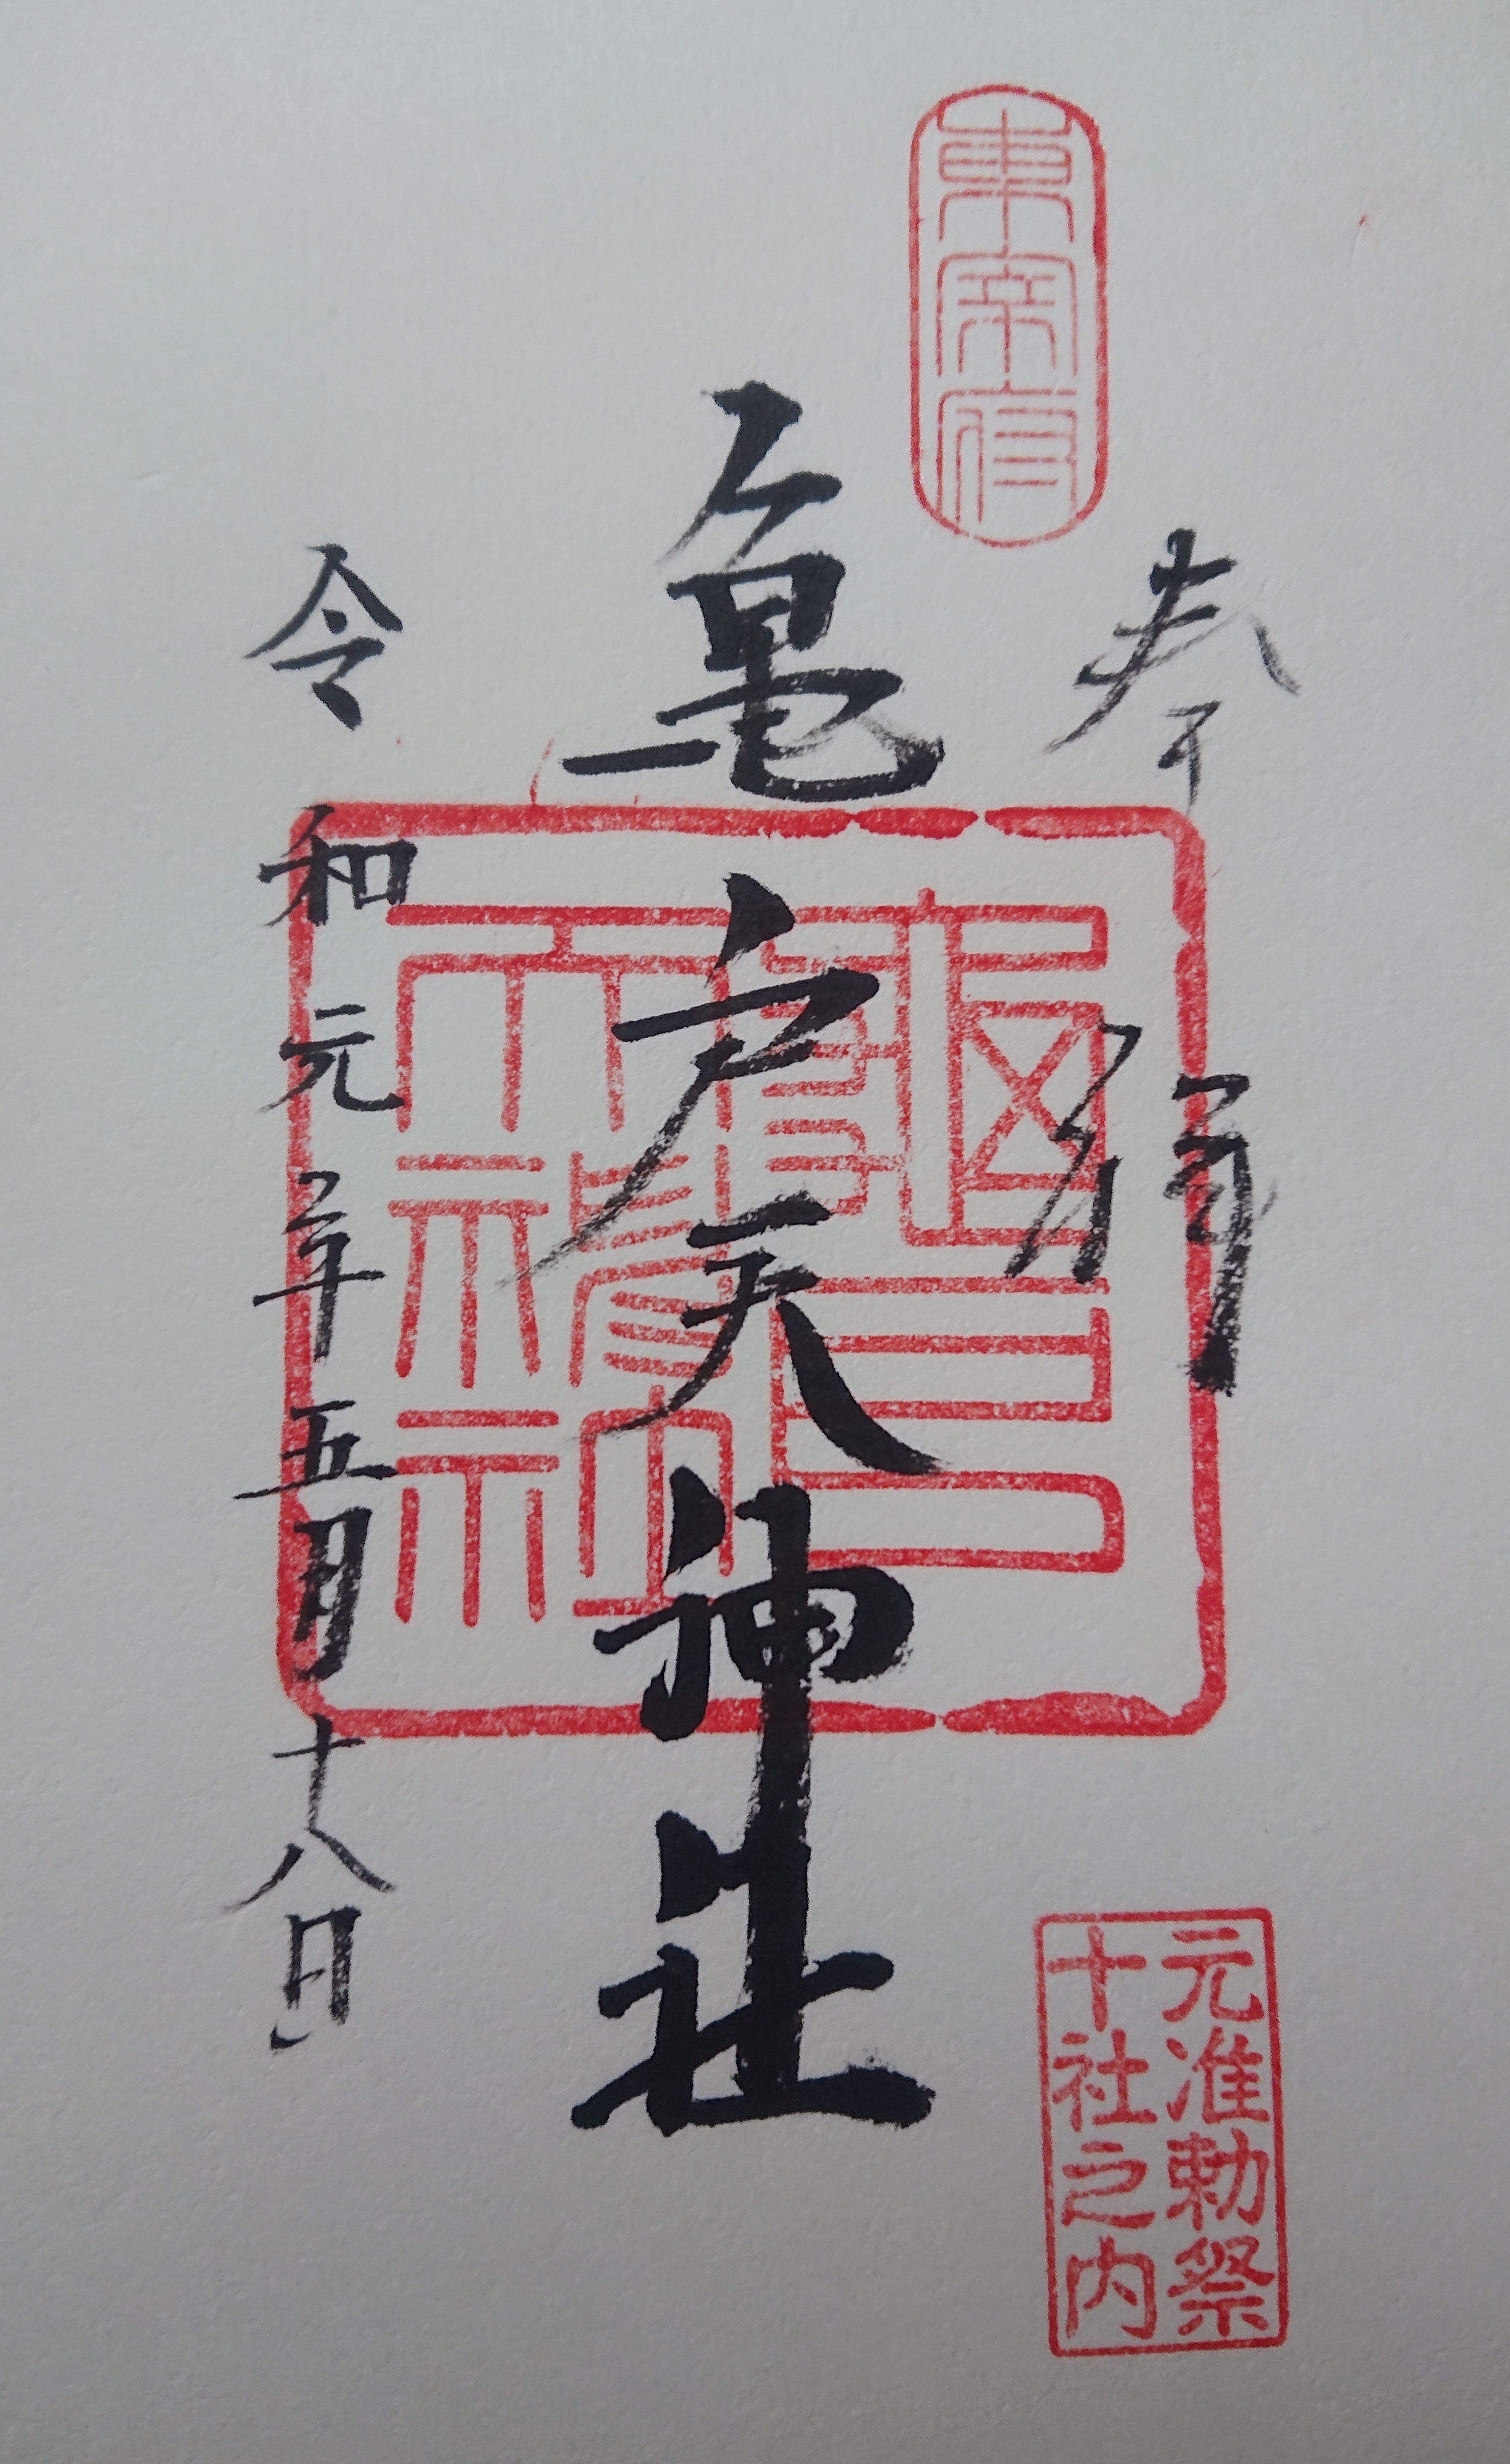 東宰府
奉拝
亀戸天神社
令和元年五月十八日
元准勅祭
十社之内